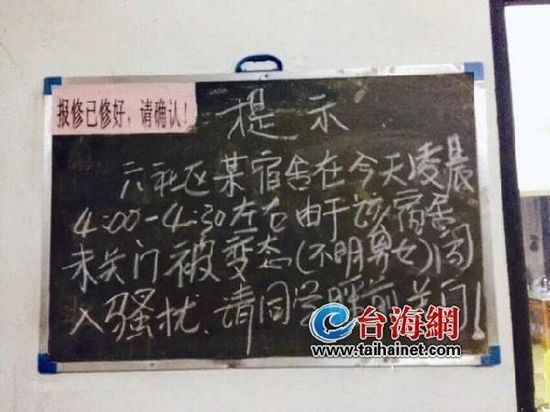 报修已修好,请确认!
提示
六社区某宿舍在今天凌晨
4:00-4:30左右由于该宿舍
未关门被变态(不明男女)闯
入骚扰.请同学睡前关门!
台海網
www.taihainet.com